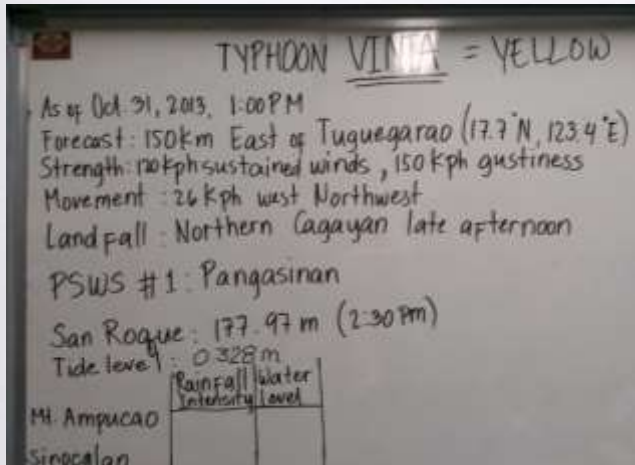 TYPHOON VINTA = YELLOW
As of Oct. 31, 2013, 1:00PM
Forecast: 150km East of Tuguegarao (17.7°N, 123.4°E)
Strength: 120kph sustained winds, 150kph gustiness
Movement: 26kph west Northwest
Landfall: Northern Cagayan late afternoon
PSWS #1: Pangasinan
San Roque: 177.97m (2:30pm)
Tide level: 0.328m
Rainfall Water
Intensity level
Mt. Ampucao
Sinocalan